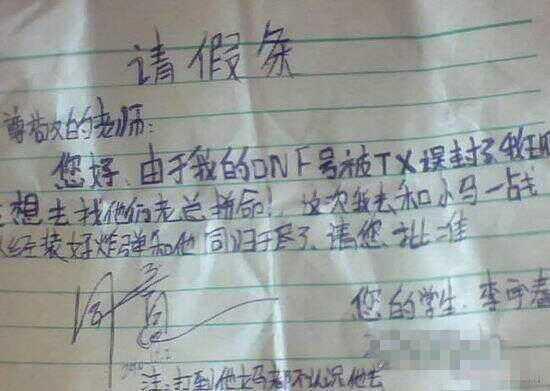 请假条
尊敬的老师:
您好,由于我的DNF号被TX误封了我现
想去找他们老总拼命!这次我去和小马一战
经装好炸弹和他同归于尽了,请您批准
同意
您的学生:李
注:打到他妈都不认识他